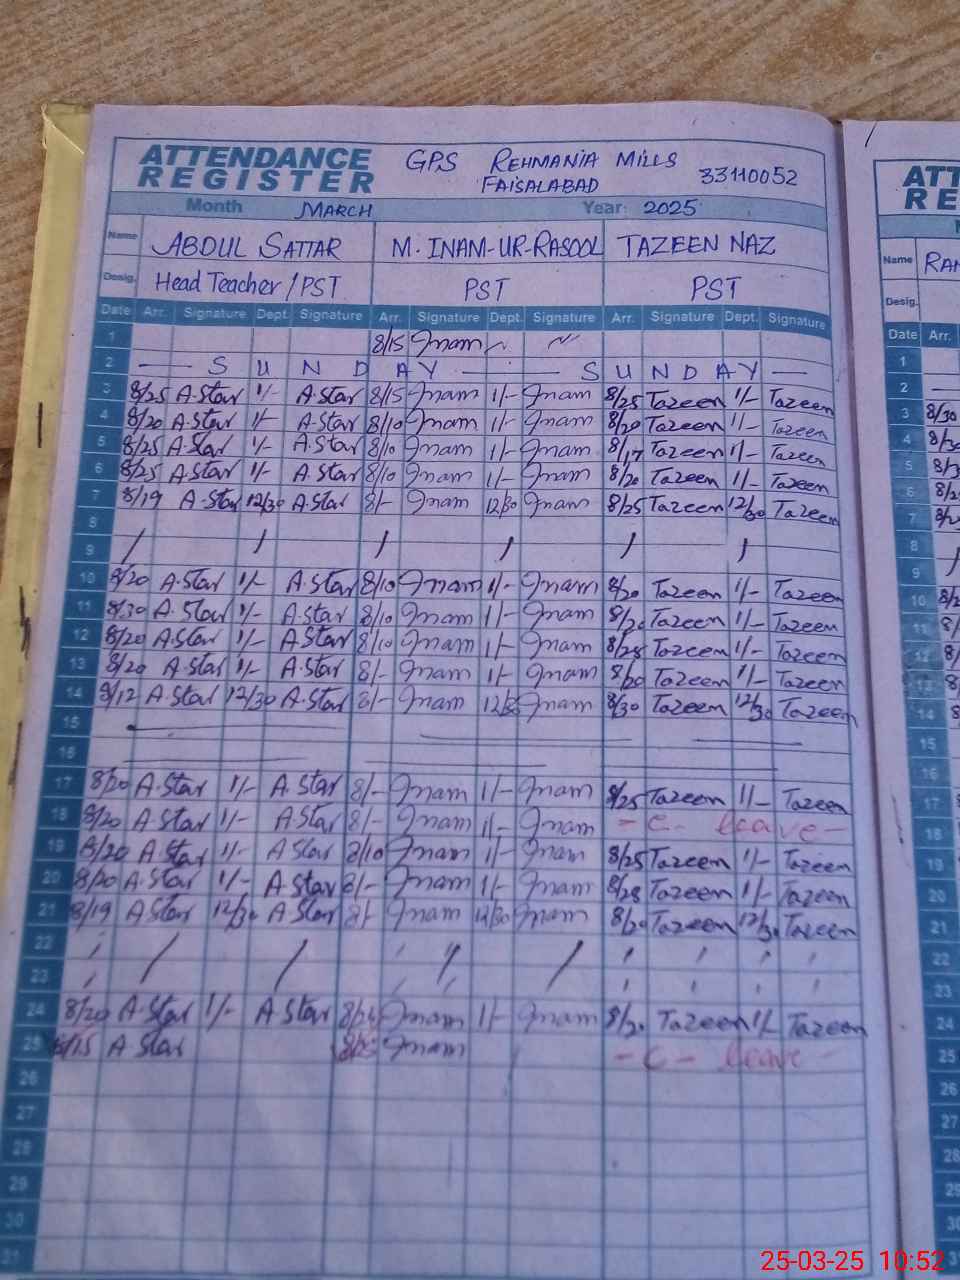 ATTENDANCE REGISTER GPS REHMANIA MILLS FAISALABAD 33110052
Month MARCH Year 2025
Name ABDUL SATTAR M. INAM-UR-RASOOL TAZEEN NAZ
Desig. Head Teacher/PST PST PST
Date Arr. Signature Dept. Signature Arr. Signature Dept. Signature Arr. Signature Dept. Signature
1 8/15 Inam
2 — S U N D A Y — S U N D A Y —
3 8/25 A.Star 1/- A.Star 8/15 Inam 1/- Inam 8/25 Tazeen 1/- Tazeen
4 8/20 A.Star 1/- A.Star 8/10 Inam 1/- Inam 8/20 Tazeen 1/- Tazeen
5 8/25 A.Star 1/- A.Star 8/10 Inam 1/- Inam 8/17 Tazeen 1/- Tazeen
6 8/25 A.Star 1/- A.Star 8/10 Inam 1/- Inam 8/20 Tazeen 1/- Tazeen
7 8/19 A.Star 12/30 A.Star 8/- Inam 12/30 Inam 8/25 Tazeen 12/30 Tazeen
8
9
10 8/20 A.Star 1/- A.Star 8/10 Inam 1/- Inam 8/20 Tazeen 1/- Tazeen
11 8/30 A.Star 1/- A.Star 8/10 Inam 1/- Inam 8/20 Tazeen 1/- Tazeen
12 8/20 A.Star 1/- A.Star 8/10 Inam 1/- Inam 8/25 Tazeen 1/- Tazeen
13 8/20 A.Star 1/- A.Star 8/- Inam 1/- Inam 8/20 Tazeen 1/- Tazeen
14 8/12 A.Star 12/30 A.Star 8/- Inam 12/30 Inam 8/30 Tazeen 12/30 Tazeen
15
16
17 8/20 A.Star 1/- A.Star 8/- Inam 1/- Inam 8/25 Tazeen 1/- Tazeen
18 8/20 A.Star 1/- A.Star 8/- Inam 1/- Inam - C - leave -
19 8/20 A.Star 1/- A.Star 8/10 Inam 1/- Inam 8/25 Tazeen 1/- Tazeen
20 8/20 A.Star 1/- A.Star 8/- Inam 1/- Inam 8/28 Tazeen 1/- Tazeen
21 8/19 A.Star 12/30 A.Star 8/- Inam 12/30 Inam 8/20 Tazeen 12/30 Tazeen
22
23
24 8/20 A.Star 1/- A.Star Inam 1/- Inam 8/20 Tazeen 1/- Tazeen
25 A.Star Inam - C - leave -
26
27
28
29
30
31
ATT
RE
Name RAN
Desig.
Date Arr.
1
2
3 8/30
4
5
6
7
8
9
10
11
12
13
14
15
16
17
18
19
20
21
22
23
24
25
26
27
28
29
30
25-03-25 10:52